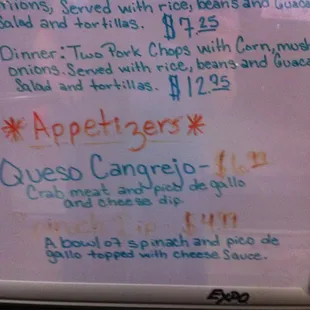 onions, Served with rice, beans and Guaca
Salad and tortillas. $7.25
Dinner: Two Pork Chops with Corn, mush
onions. Served with rice, beans and Guaca
Salad and tortillas. $12.95
*Appetizers*
Queso Cangrejo-
Crab meat and pico de gallo
and cheese dip
Spinach Dip -
A bowl of spinach and pico de
gallo topped with cheese Sauce.
EXPO